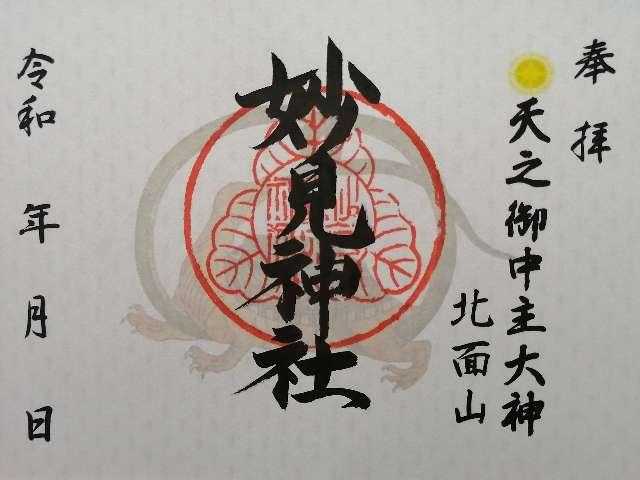 奉拝
天之御中主大神
北面山
妙見神社
令和 年 月 日